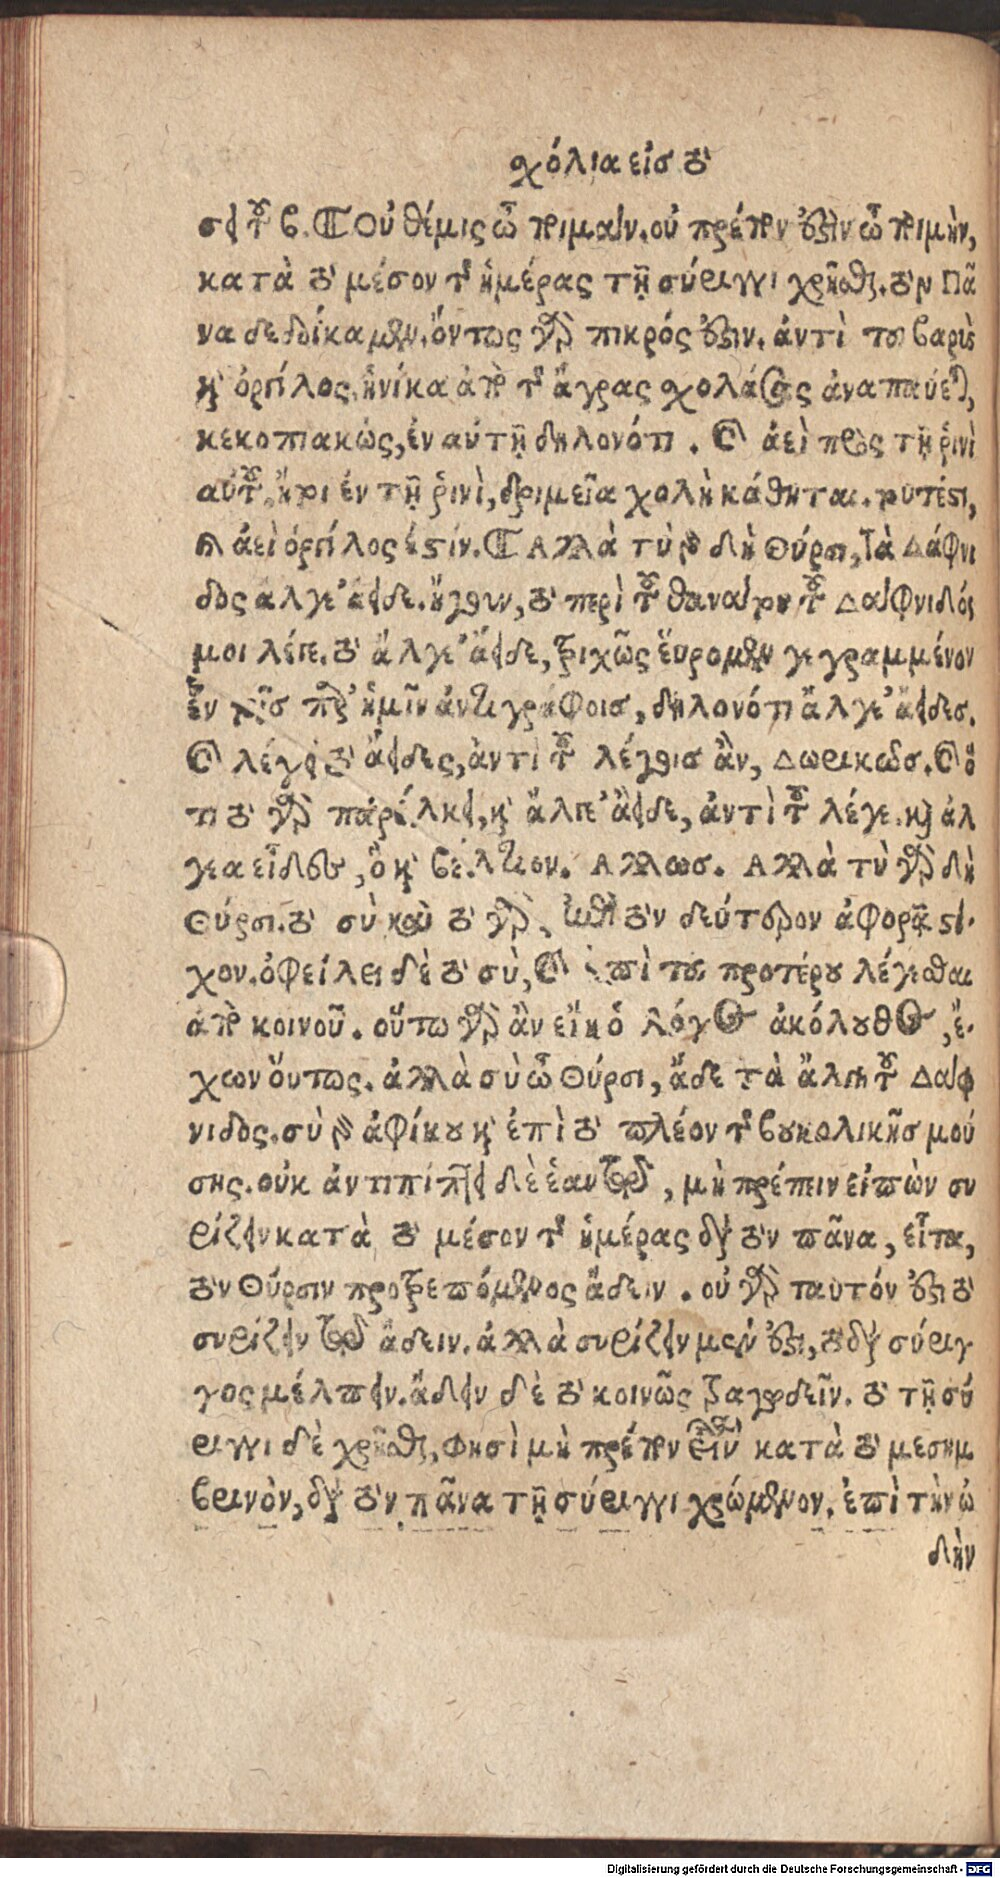 σχόλια εἰσ τὸ
σει τοῦ β. Οὐ θέμις ὦ ποιμαίν. οὐ πρέπον ἐστὶν ὦ ποιμὴν,
κατὰ τὸ μέσον τῆς ἡμέρας τῇ σύριγγι χρῆσθαι. τὸν Πᾶ
να δεδοίκαμεν. ὄντως γὰρ πικρός ἐστιν. ἀντὶ τοῦ βαρὺς
καὶ ὀργίλος, ἡνίκα ἀπὸ τῆς ἄγρας σχολάσας ἀναπαύεται,
κεκοπιακώς, ἐν αὐτῇ δηλονότι. καὶ ἀεὶ πρὸς τῇ ῥινὶ
αὐτοῦ, ἤτοι ἐν τῇ ῥινὶ, δριμεῖα χολὴ κάθηται. τουτέστι,
καὶ ἀεὶ ὀργίλος ἐστίν. Αλλὰ τὺ γὰρ δὴ Θύρσι, τὰ Δάφνι
δος ἄλγε' ἄειδε. ἤγουν, τὸ περὶ τοῦ θανάτου τοῦ Δάφνιδός
μοι λέγε. τὸ ἄλγε' ἄειδε, τριχῶς εὕρομεν γεγραμμένον
ἐν τοῖσ παρ' ἡμῖν ἀντιγράφοισ, δηλονότι ἄλγε' ἄειδεσ.
καὶ λέγει τὸ ἄειδες, ἀντὶ τοῦ λέγοισ ἂν, Δωρικῶσ. καὶ ὅ
τι τὸ γὰρ παρέλκει, καὶ ἄλγε' ἄειδε, ἀντὶ τοῦ λέγε. καὶ ἄλ
γεα εἶδες, ὃ καὶ βέλτιον. Αλλωσ. Αλλὰ τὺ γὰρ δὴ
Θύρσι. τὸ σὺ καὶ τὸ γὰρ, ἐπὶ τὸν δεύτερον ἀφορᾷ στί-
χον. ὀφείλει δὲ τὸ σὺ, καὶ ἐπὶ τοῦ προτέρου λέγεσθαι
ἀπὸ κοινοῦ. οὕτω γὰρ ἂν εἴη ὁ λόγος ἀκόλουθος, ἔ-
χων οὕτως. ἀλλὰ σὺ ὦ Θύρσι, ᾆδε τὰ ἄλγη τοῦ Δάφ
νιδος. σὺ γὰρ ἀφίκου καὶ ἐπὶ τὸ πλέον τῆς βουκολικῆσ μού
σης. οὐκ ἀντιπίπτει δὲ ἑαυτῷ, μὴ πρέπειν εἰπὼν συ
ρίζειν κατὰ τὸ μέσον τῆς ἡμέρας διὰ τὸν πᾶνα, εἶτα,
τὸν Θύρσιν προτρεπόμενος ᾄδειν. οὐ γὰρ ταυτόν ἐστι τὸ
συρίζειν τῷ ᾄδειν. ἀλλὰ συρίζειν μέν ἐστι, τὸ διὰ σύριγ
γος μέλπειν. ᾄδειν δὲ τὸ κοινῶς τραγῳδεῖν. τὸ τῇ σύ
ριγγι δὲ χρῆσθαι, φησὶ μὴ πρέπον εἶναι κατὰ τὸ μεσημ
βρινὸν, διὰ τὸν πᾶνα τῇ σύριγγι χρώμενον. ἐπὶ τὴν ᾠ
δὴν
Digitalisierung gefördert durch die Deutsche Forschungsgemeinschaft - DFG